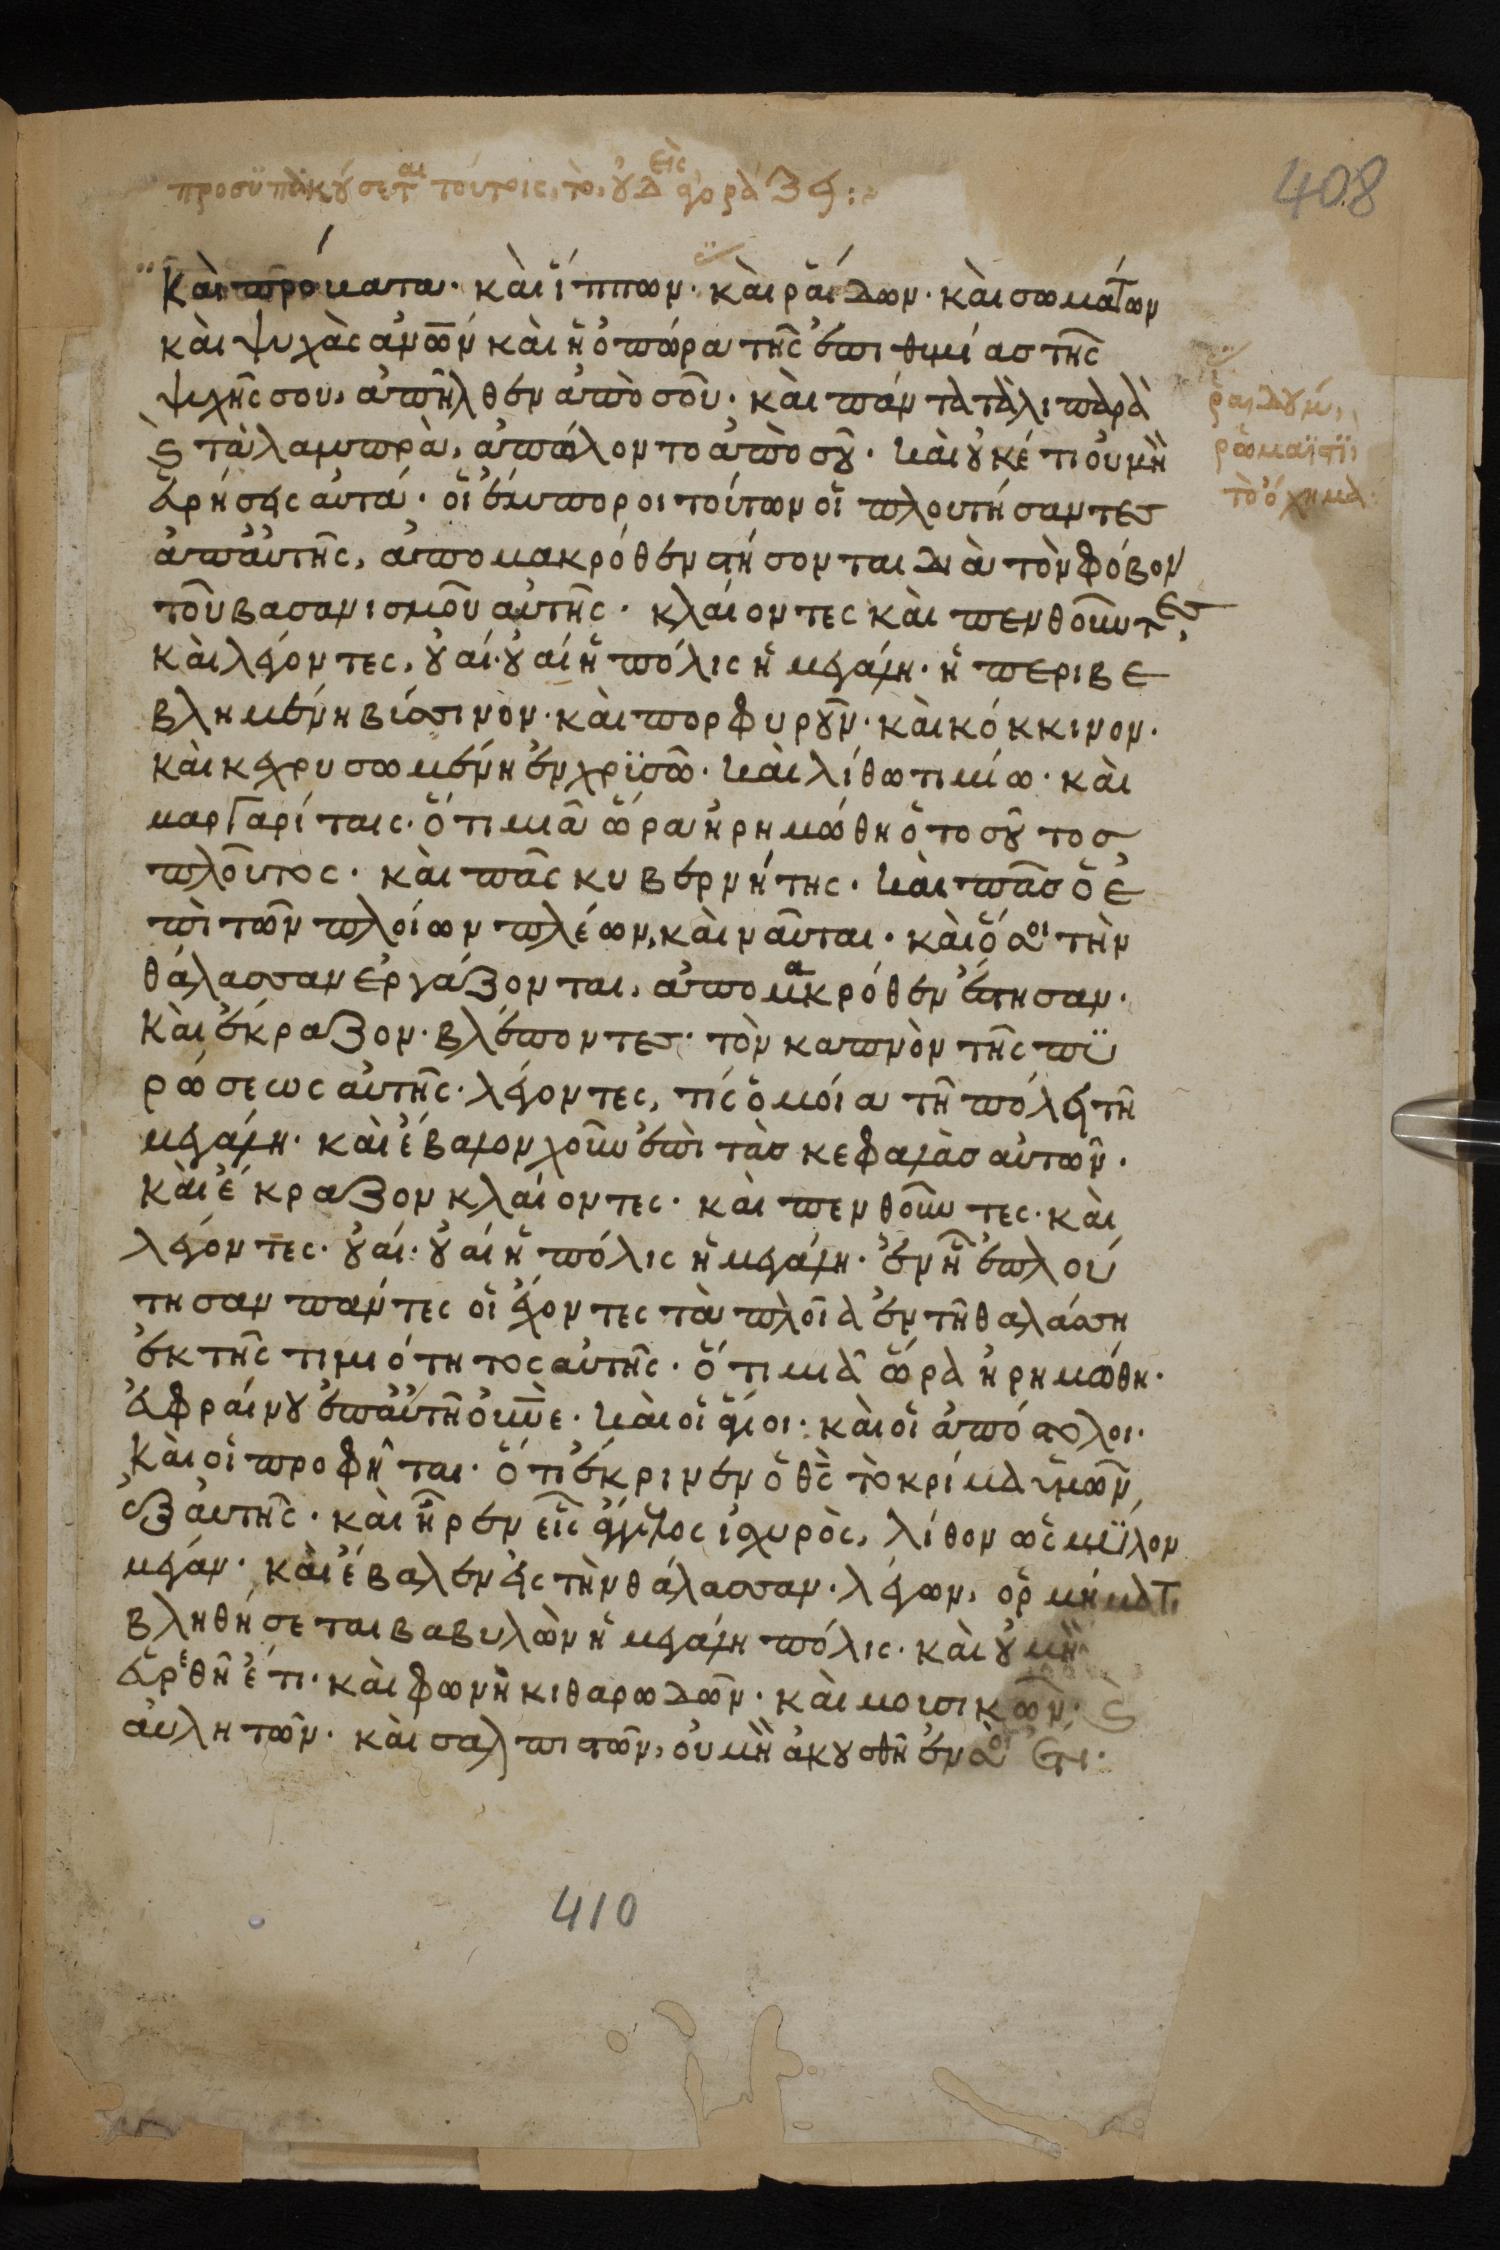 προσϋπακούσεται τούτοις, τὸ, οὐδεὶς ἀγοράζει:
408
καὶ πρόβατα· καὶ ἵππων· καὶ ῥαίδων· καὶ σωμάτων
καὶ ψυχὰς ἀνῶν καὶ ἡ ὀπώρα τῆς ἐπιθυμίας τῆς
ψυχῆς σου, ἀπῆλθεν ἀπὸ σοῦ· καὶ πάντα τὰ λιπαρὰ
ϗ τὰ λαμπρὰ, ἀπώλοντο ἀπὸ σοῦ· καὶ οὐκέτι οὐ μὴ
εὑρήσεις αὐτά· οἱ ἔμποροι τούτων οἱ πλουτήσαντες
ἀπ' αὐτῆς, ἀπομακρόθεν στήσονται διὰ τὸν φόβον
τοῦ βασανισμοῦ αὐτῆς· κλαίοντες καὶ πενθοῦντες,
καὶ λέγοντες, οὐαί· οὐαί ἡ πόλις ἡ μεγάλη· ἡ περιβε
βλημένη βύσσινον· καὶ πορφυροῦν· καὶ κόκκινον·
καὶ κεχρυσωμένη ἐν χρϋσῶ· καὶ λίθω τιμίω· καὶ
μαργαρίταις· ὅτι μιᾶ ὥρα ἠρημώθη ὁ τοσοῦτος
πλοῦτος· καὶ πᾶς κυβερνήτης· καὶ πᾶς ὁ ἐ
πὶ τῶν πλοίων πλέων, καὶ ναῦται· καὶ ὅσοι τὴν
θάλασσαν ἐργάζονται, ἀπομακρόθεν ἔστησαν·
καὶ ἔκραζον· βλέποντες· τὸν καπνὸν τῆς πϋ
ρώσεως αὐτῆς· λέγοντες, τίς ὁμοία τῆ πόλει τῆ
μεγάλη· καὶ ἔβαλον χοῦν ἐπὶ τὰς κεφαλὰς αὐτῶν·
καὶ ἔκραζον κλαίοντες· καὶ πενθοῦντες· καὶ
λέγοντες· οὐαί· οὐαί ἡ πόλις ἡ μεγάλη· ἐν ἧ ἐπλού
τησαν πάντες οἱ ἔχοντες τὰ πλοῖα ἐν τῆ θαλάσση
ἐκ τῆς τιμιότητος αὐτῆς· ὅτι μιᾶ ὥρα ἠρημώθη·
εὐφραίνου ἐπ' αὐτῆ οὐνὲ· καὶ οἱ ἅγιοι· καὶ οἱ ἀπόστολοι·
καὶ οἱ προφῆται· ὅτι ἔκρινεν ὁ θς τὸ κρίμα ὑμῶν,
ἐξ αὐτῆς· καὶ ἦρεν εἷς ἄγγελος ἰσχυρὸς, λίθον ὡς μϋλον
μέγαν· καὶ ἔβαλεν εἰς τὴν θάλασσαν· λέγων, ὁρμήματι
βληθήσεται βαβυλὼν ἡ μεγάλη πόλις· καὶ οὐ μὴ
εὑρεθῆ ἔτι· καὶ φωνὴ κιθαρωδῶν· καὶ μουσικῶν· ϗ
αὐλητῶν· καὶ σαλπιστῶν, οὐ μὴ ἀκουσθῆ ἐν σοὶ ἔτι·
ῥαιδῶν,
ῥωμαϊστϊ,
τὸ ὄχημα·
410